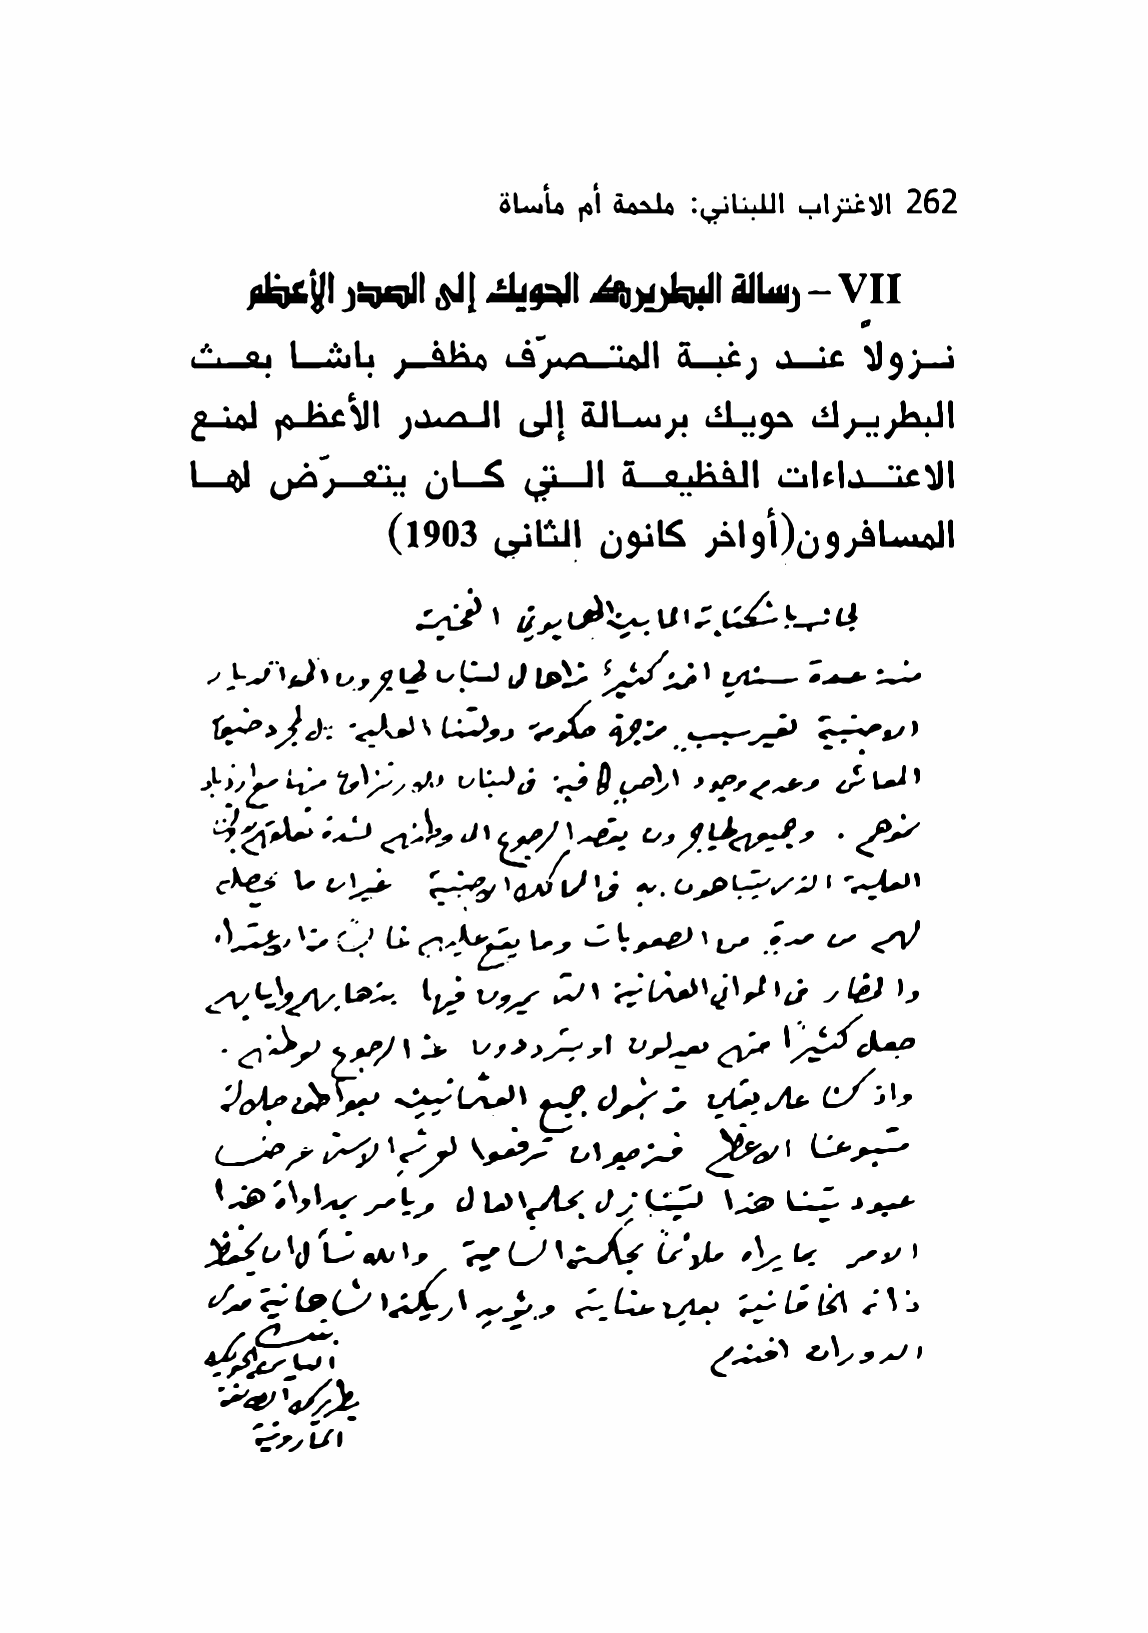 262 الاغتراب اللبناني: ملحمة أم مأساة
VII – رسالة البطريرك الحويك إلى الصدر الأعظم
نزولاً عند رغبة المتصرّف مظفر باشا بعث
البطريرك حويك برسالة إلى الصدر الأعظم لمنع
الاعتداءات الفظيعة التي كان يتعرّض لها
المسافرون(أواخر كانون الثاني 1903)
لجانب باشكتابة المابين الهمايوني الفخيمة
منذ عدة سنين اخذ كثير من اهالي لبنان يهاجرون الى الديار
الاجنبية لغير سبب من جهة حكومة دولتنا العلية بل لمجرد ضيقة
المعاش وعدم وجود اراضٍ كافية في لبنان للارتزاق منها مع ازدياد
نموهم . وجميعهم يهاجرون بقصد الرجوع الى وطانهم لشدة تعلقهم
العلية الذين يتباهون به في الممالك الاجنبية غير ان ما يحصل
لهم من مدةٍ من الصعوبات وما يقع عليهم غالباً من الاعتداء
والمضار في المواني العثمانية التي يمرون فيها بذهابهم وايابهم
جعل كثيرًا منهم يعدلون او يترددون عن الرجوع لوطنهم .
واذ كنا على يقين من شمول جميع العثمانيين بعواطف جلالة
متبوعنا الاعظم فنرجو ان ترفعوا لعرشه الاسنى عرض
عبوديتنا هذا ليتنازل بحلمه العالي ويأمر بمداواة هذا
الامر بما يراه ملائماً بحكمته السامية والله نسأل ان يحفظ
ذاته الخاقانية بعين عنايته ويؤيد اريكته الشاهانية مدى
الدوران افندم
الياس الحويك
بطريرك الطائفة
المارونية